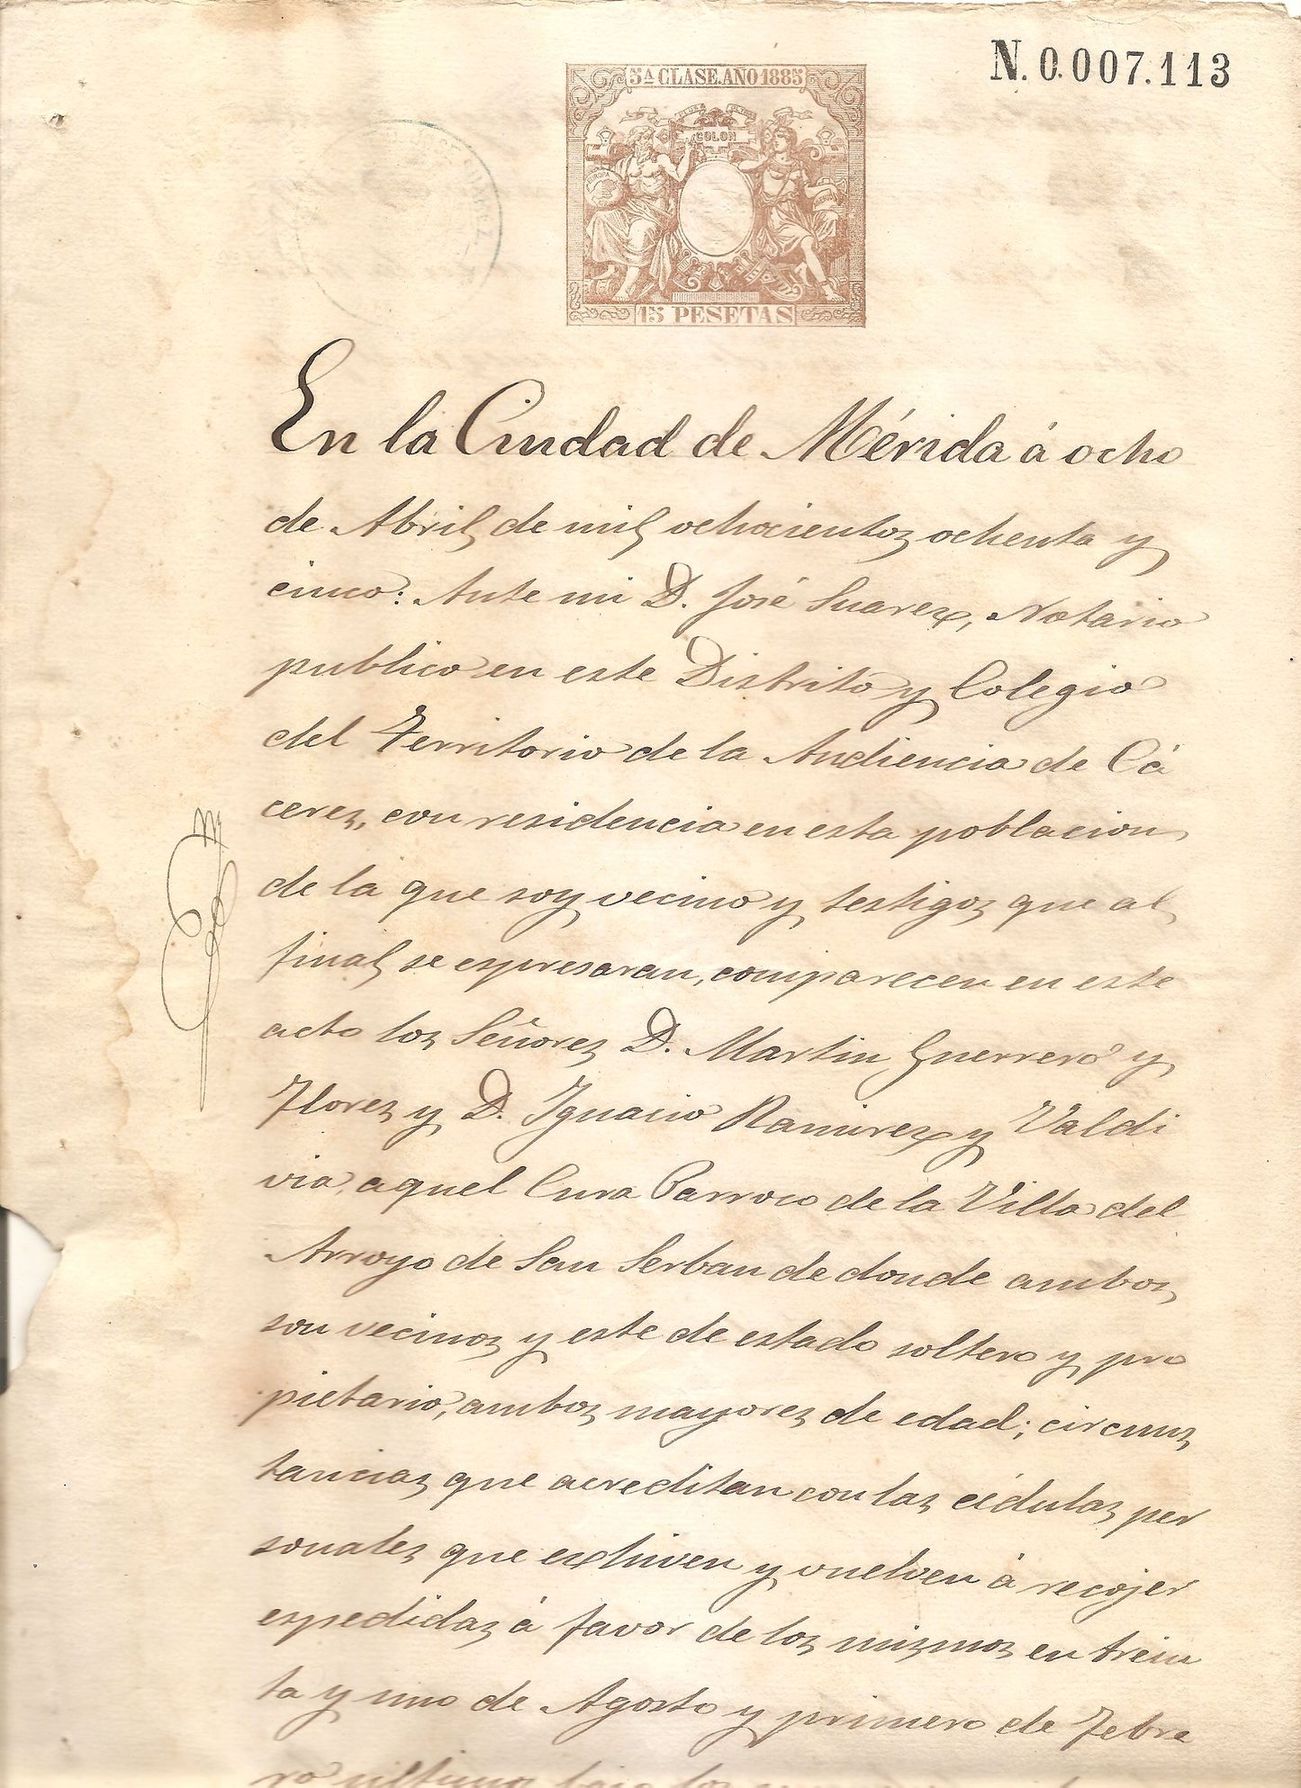 N. 0.007.113
5A CLASE. AÑO 1885
COLON
EUROPA
15 PESETAS
En la Ciudad de Mérida á ocho
de Abril de mil ochocientos ochenta y
cinco: Ante mi D. José Suarez, Notario
publico en este Distrito y Colegio
del Territorio de la Audiencia de Cá
ceres, con residencia en esta poblacion
de la que soy vecino y testigos que al
final se espresaran, comparecen en este
acto los Señores D. Martin Guerrero y
Flores y D. Ignacio Ramirez y Valdi
via, aquel Cura Parroco de la Villa del
Arroyo de San Serban de donde ambos
son vecinos y este de estado soltero y pro
pietario, ambos mayores de edad; circuns
tancias que acreditan con las cédulas per
sonales que exhiven y vuelven á recojer
espedidas á favor de los mismos en trein
ta y uno de Agosto y primero de Febre
ro ultimos bajo los